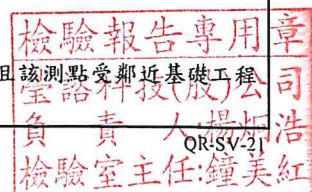 檢驗報告專用章
且該測點受鄰近基礎工程
瑩諮科技(股)公司
負責人:楊炯浩
QR-SV-21
檢驗室主任:鐘美紅